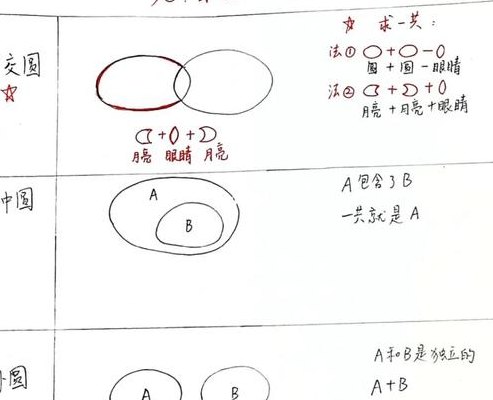 ☆ 求一共:
交圆
☆
法① ○+○-()
圆 + 圆 - 眼睛
法② ☾+☽+()
月亮 + 月亮 + 眼睛
☾+()+☽
月亮 眼睛 月亮
中圆
A
B
A包含了B
一共就是A
圆
A
B
A和B是独立的
A+B